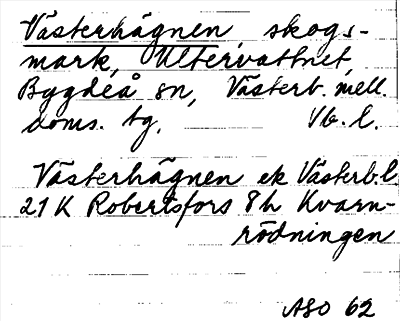 Västerhägnen, skogs-
mark, Ultervattnet,
Bygdeå sn, Västerb. mell.
doms. tg. Vb. l.
Västerhägnen ek Västerb. l
21 K Robertsfors 8h Kvarn-
rödningen
ASO 62